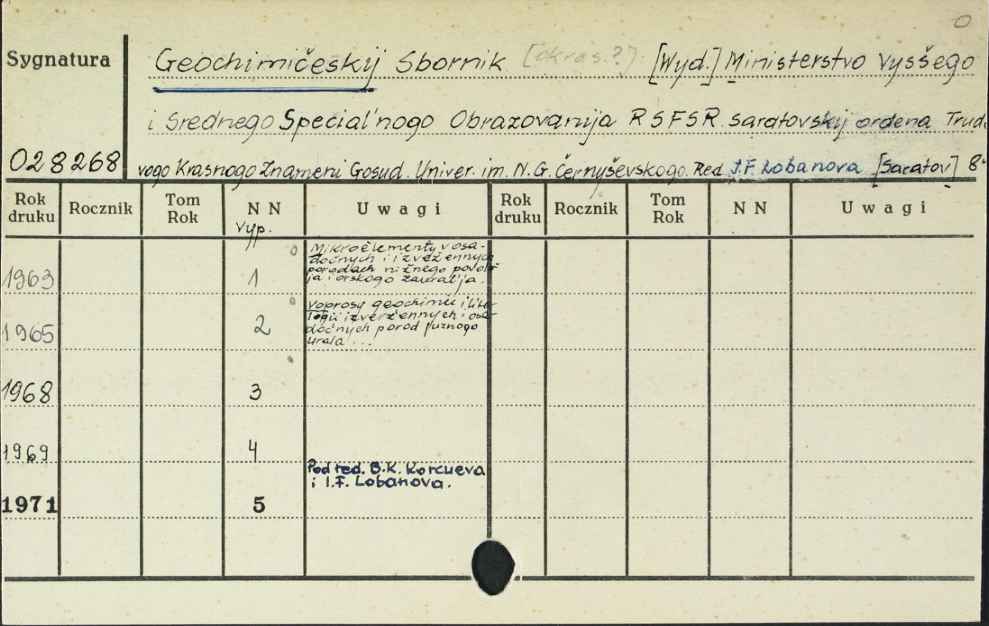 0
Sygnatura
Geochimičeskij Sbornik [okres.?]. [Wyd.] Ministerstvo Vysšego
i Srednego Special'nogo Obrazovanija RSFSR. Saratovskij ordena Trudo
028268
vogo Krasnogo Znameni Gosud. Univer. im. N.G. Černyševskogo. Red. I.F. Lobanova [Saratov] 8°
Rok druku Rocznik Tom Rok N N Uwagi Rok druku Rocznik Tom Rok N N Uwagi
Vyp.
1963 1 Mikroèlementy v osa-
dočnych i izveržennych
porodach nižnego povolž'
ja i orskogo zaural'ja.
1965 2 Voprosy geochimii i lito-
logii izveržennych i osa-
dočnych porod južnogo
urala ...
1968 3
1969 4
Pod red. B.K. Korcueva
i I.F. Lobanova.
1971 5